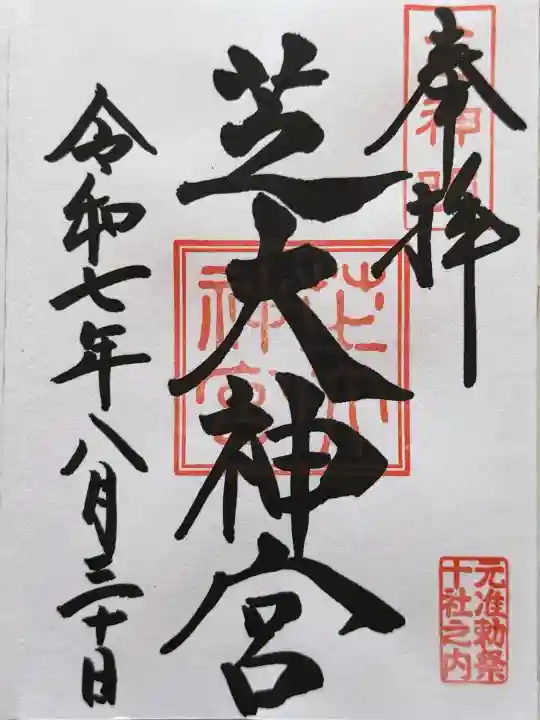 奉拝
芝大神宮
令和七年八月三十日
元准勅祭
十社之内